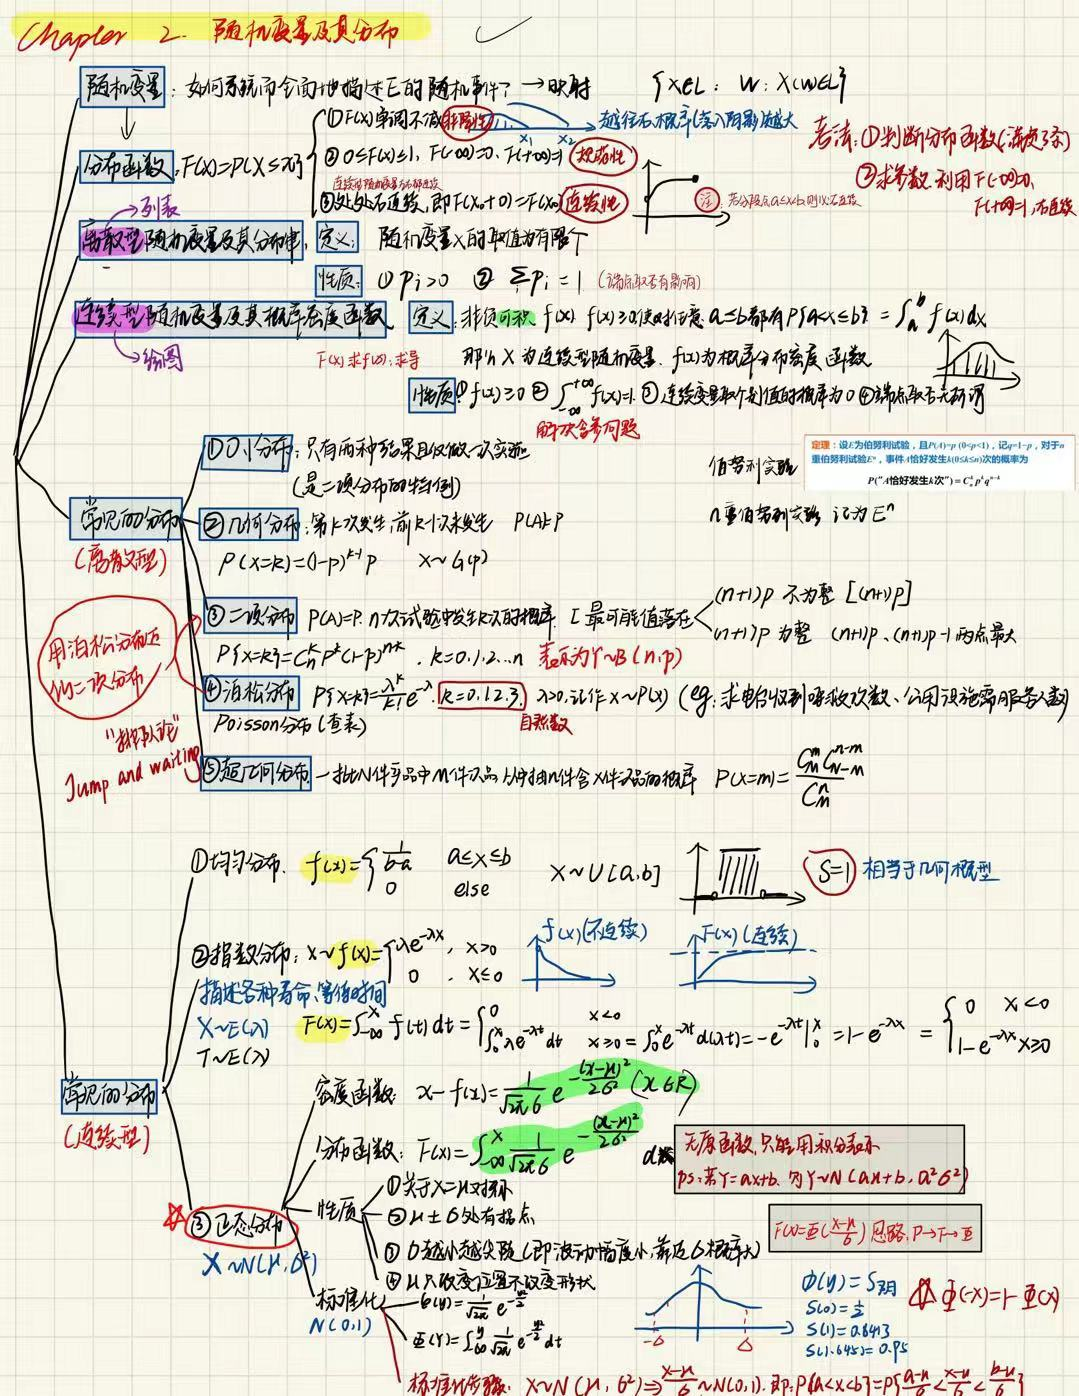 Chapter 2. 随机变量及其分布
随机变量: 如何系统而全面地描述E的随机事件? → 映射 {X∈L: W: X(W)∈L}
分布函数: F(x)=P{X≤x}
①F(x)单调不减 非降性 x₁ x₂ 越往右概率(落入阴影)越大
② 0≤F(x)≤1, F(-∞)=0, F(+∞)=1 规范性
③处处右连续, 即F(x₀+0)=F(x₀) 连续性
考法: ①判断分布函数(满足3条)
②求参数, 利用F(-∞)=0,
F(+∞)=1, 右连续
→列表
离散型随机变量及其分布律, 定义: 随机变量X的取值为有限个
性质: ① pᵢ>0 ② Σpᵢ=1 (端点取否有影响)
连续型随机变量及其概率密度函数 定义: 非负可积 f(x). f(x)≥0,使对任意 a≤b都有P{a<x≤b} = ∫ₐᵇ f(x)dx
→绘图
F(x)求f(x),求导
那么 X 为连续型随机变量. f(x)为概率分布密度函数
性质: ①f(x)≥0 ② ∫₋∞⁺∞ f(x)=1. ③连续变量取个别值的概率为0 ④端点取否无所谓
解决含参问题
常见的分布
(离散型)
①0-1分布: 只有两种结果且仅做一次实验
(是二项分布的特例)
伯努利实验
定理:设E为伯努利试验,且P(A)=p (0<p<1),记q=1-p,对于n
重伯努利试验Eⁿ,事件A恰好发生k(0≤k≤n)次的概率为
P("A恰好发生k次")=Cₙᵏpᵏqⁿ⁻ᵏ
n重伯努利实验 记为Eⁿ
②几何分布: 第k次发生,前k-1次未发生 P(A)=P
P(X=k)=(1-p)ᵏ⁻¹p X~G(p)
用泊松分布近似二项分布
③二项分布 P(A)=P. n次试验中发生k次的概率. [最可能值落在
(n+1)p 不为整 [(n+1)p]
(n+1)p 为整 (n+1)p、(n+1)p-1 两点最大
P{X=k}=Cₙᵏpᵏ(1-p)ⁿ⁻ᵏ. k=0.1.2...n 表示为Y~B(n,p)
④泊松分布 P{X=k}=λᵏ/k! e^-λ. k=0.1.2.3. λ>0,记作X~P(λ) (eg: 求电台收到呼救次数、公用设施需服务人数)
自然数
Poisson分布(查表)
"排队论"
Jump and waiting
⑤超几何分布 一批N件产品中M件次品,从中抽n件含x件次品的概率 P(X=m)=
常见的分布
(连续型)
①均匀分布. f(x)={ 1/(b-a) a≤x≤b
0 else
X~U[a,b] S=1 相当于几何概型
②指数分布: X~f(x)={ λe^-λx, x>0
0, x≤0
f(x)(不连续) F(x)(连续)
描述各种寿命、等值时间
X~E(λ)
T~E(λ)
F(x)=∫₋∞ˣ f(t)dt={ 0 x<0
∫₀ˣλe^-λt dt x≥0 = ∫₀ˣe^-λt d(λt)=-e^-λt|₀ˣ=1-e^-λx = { 0 x<0
1-e^-λx x≥0
③正态分布
X~N(μ,σ²)
密度函数: x-f(x)=1/(√2π σ) e^-(x-μ)²/2σ² (x∈R)
分布函数: F(x)=∫₋∞ˣ 1/(√2π σ) e^-(x-μ)²/2σ²
无原函数,只能用积分表示
ps:若Y=ax+b. 则Y~N(aμ+b, a²σ²)
性质 ①关于X=μ对称
②μ±σ处有拐点
③σ越小越尖陡(即波动幅度小,靠近σ概率大)
④μ只改变位置不改变形状
F(x)=Φ((x-μ)/σ) 思路: P→F→Φ
标准化
N(0,1)
φ(y)=1/√2π e^-y²/2
Φ(y)=∫₋∞ʸ 1/√2π e^-t²/2 dt
Φ(y)=S阴
S(0)=1/2
S(1)=0.8413
S(1.645)=0.95
Φ(-x)=1-Φ(x)
标准化步骤: X~N(μ,σ²)⇒(x-μ)/σ~N(0,1). 即: P{a<x<b}=P{(a-μ)/σ<(x-μ)/σ<(b-μ)/σ}